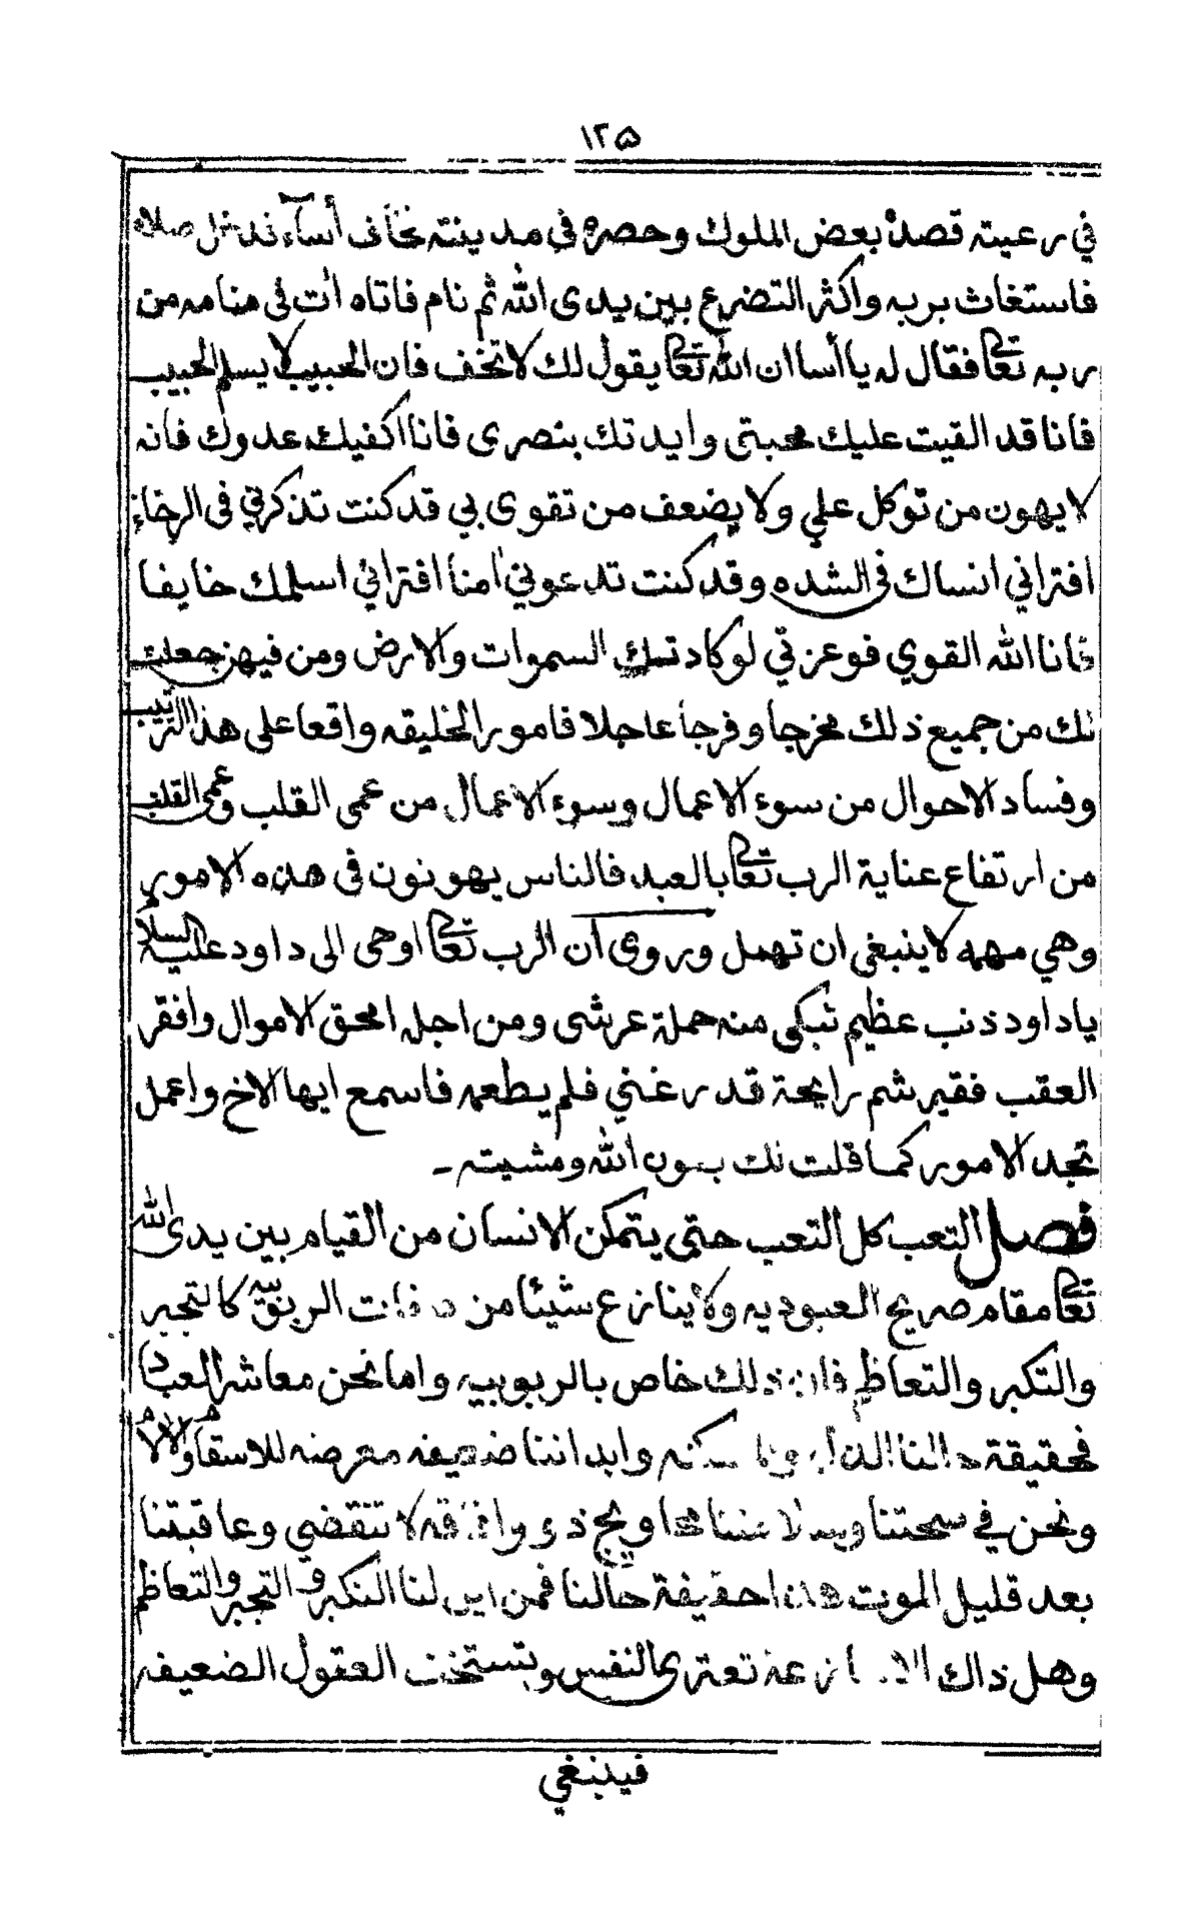 ١٢٥
في رعيته قصده بعض الملوك وحصره في مدينته فخاف أساء فدخل صلاه
فاستغاث بربه واكثر التضرع بين يدى الله ثم نام فاتاه ات في منامه من
ربه تعالى فقال له يا أسا ان الله تعالى يقول لك لا تخف فان الحبيب لا يسلم الحبيب
فانا قد القيت عليك محبتي وايدتك بنصرى فانا اكفيك عدوك فانه
لا يهون من توكل علي ولا يضعف من تقوى بي قد كنت تذكرني في الرخاء
افتراني انساك في الشده وقد كنت تدعوني امنا افتراني اسلمك خايفا
فانا الله القوي فوعزتي لو كادتك السموات والارض ومن فيهن جعلت
لك من جميع ذلك مخرجا وفرجا عاجلا فامور الخليقه واقعا على هذا الترتيب
وفساد الاحوال من سوء الاعمال وسوء الاعمال من عمى القلب وعمى القلب
من ارتفاع عناية الرب تعالى بالعبد فالناس يهونون في هذه الامور
وهي مهمه لا ينبغي ان تهمل وروى أن الرب تعالى اوحى الى داود عليه السلام
ياداود ذنب عظيم تبكى منه حملة عرشى ومن اجله امحق الاموال وافقر
العقب فقير شم رايحة قدر غني فلم يطعمه فاسمع ايها الاخ واعمل
تجد الامور كما قلت لك بعون الله ومشيته ـ
فصل التعب كل التعب حتى يتمكن الانسان من القيام بين يدى الله
تعالى مقام صريح العبوديه ولا ينازع شيئا من صفات الربوبيه كالتجبر
والتكبر والتعاظم فان ذلك خاص بالربوبيه واما نحن معاشر العباد
فحقيقة حالنا الذل والمسكنه وابداننا ضعيفه معرضه للاسقام والالام
ونحن في سحتنا وسلامتنا محاويج ذوى وافاقه لا تنقضي وعاقبتنا
بعد قليل الموت هذا حقيقة حالنا فمن اين لنا التكبر والتجبر والتعاظم
وهل ذاك الا نزعه تعترى النفس وتستخف العقول الضعيفه
فينبغي